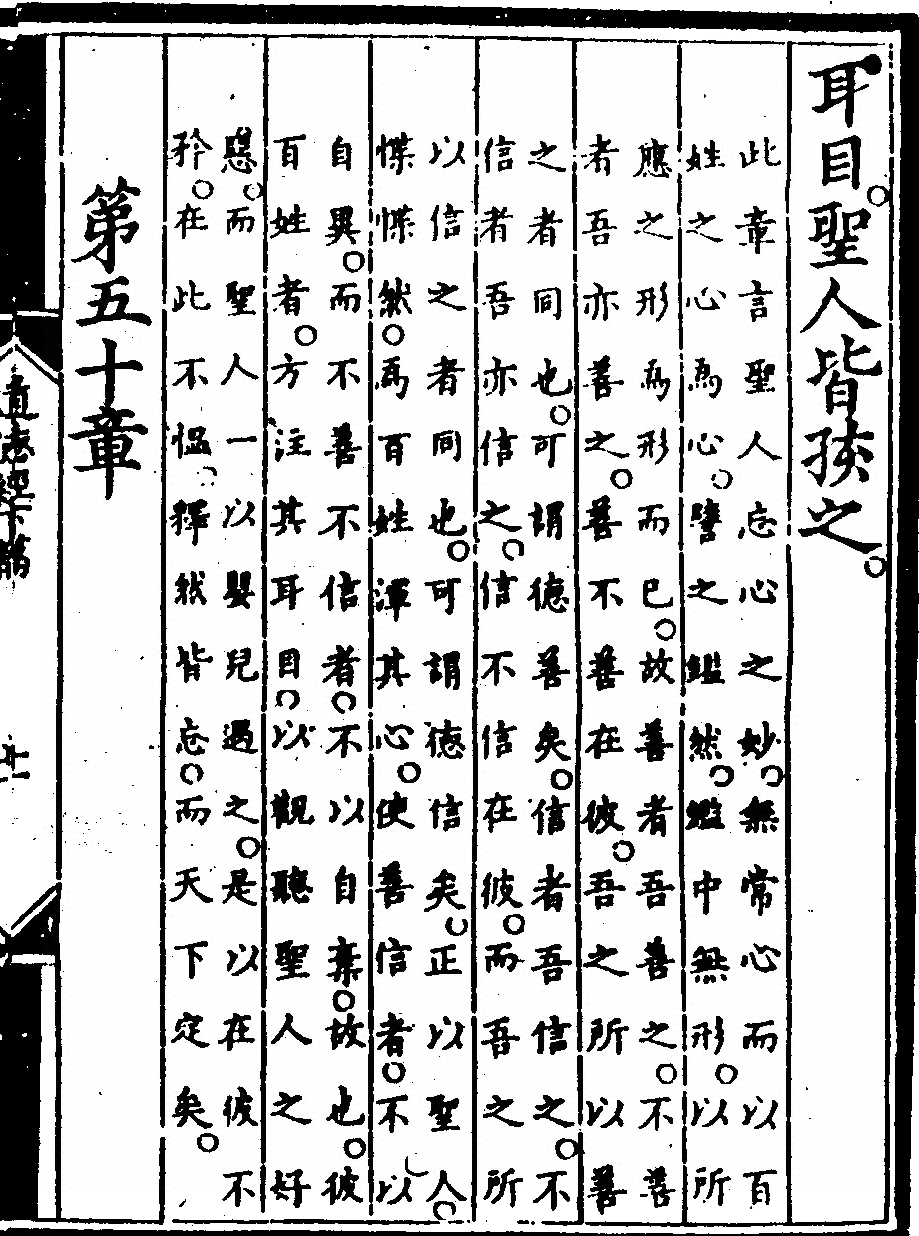 耳目。聖人皆孩之。
此章言聖人忘心之妙。無常心而以百
姓之心爲心。譬之鑑然。鑑中無形。以所
應之形爲形而已。故善者吾善之。不善
者吾亦善之。善不善在彼。吾之所以善
之者同也。可謂德善矣。信者吾信之。不
信者吾亦信之。信不信在彼。而吾之所
以信之者同也。可謂德信矣。正以聖人。
惵惵然。爲百姓渾其心。使善信者。不以
自異。而不善不信者。不以自棄。故也。彼
百姓者。方注其耳目。以觀聽聖人之好
惡。而聖人一以嬰兒遇之。是以在彼不
矜。在此不慍。釋然皆忘。而天下定矣。
第五十章
道德經下篇
廿一